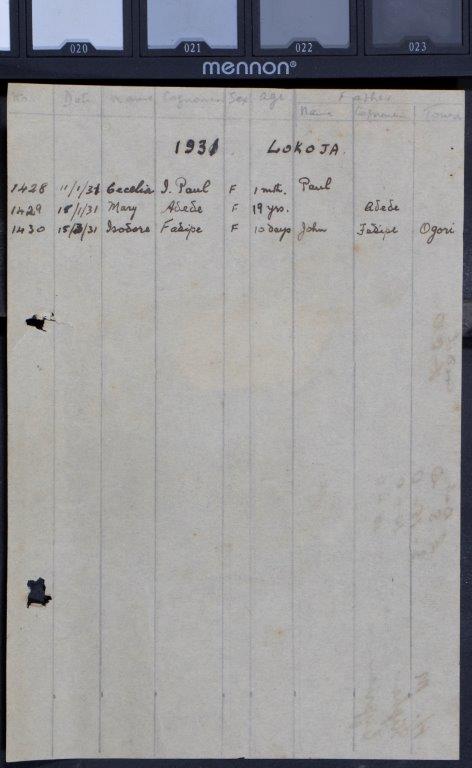 020 021 022 023
mennon®
No. Date Name Cognomen Sex Age Father
Name Cognomen Town
1931. LOKOJA.
1428 11/1/31 Cecelia I. Paul F 1 mth. Paul
1429 18/1/31 Mary Adede F 19 yrs. Adede
1430 15/3/31 Isodore Fadipe F 10 days John Fadipe Ogori